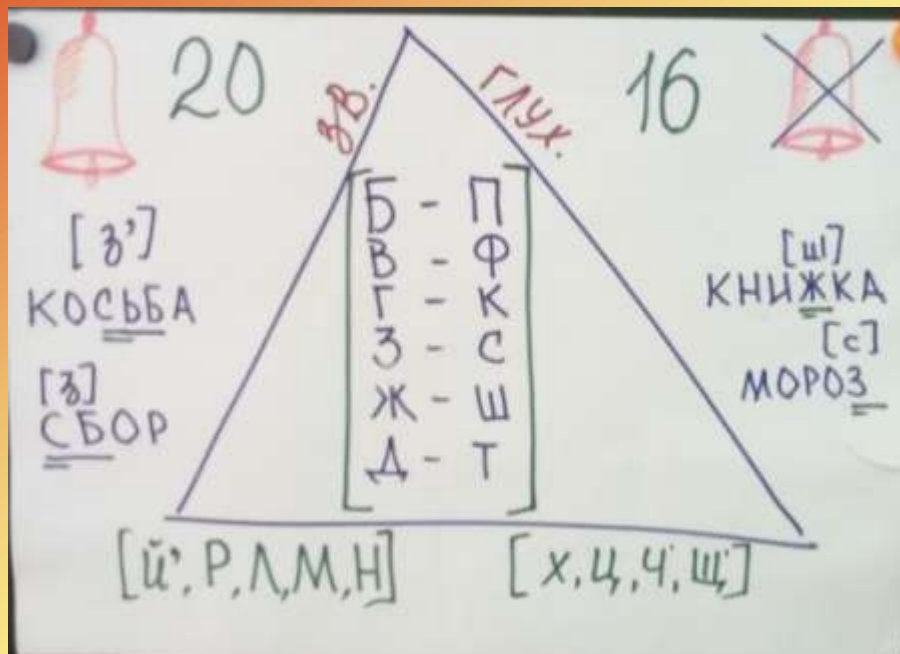 20
ЗВ.
ГЛУХ.
16
[З']
КОСЬБА
[З]
СБОР
Б - П
В - Ф
Г - К
З - С
Ж - Ш
Д - Т
[Ш]
КНИЖКА
[С]
МОРОЗ
[Й', Р, Л, М, Н]
[Х, Ц, Ч', Щ']